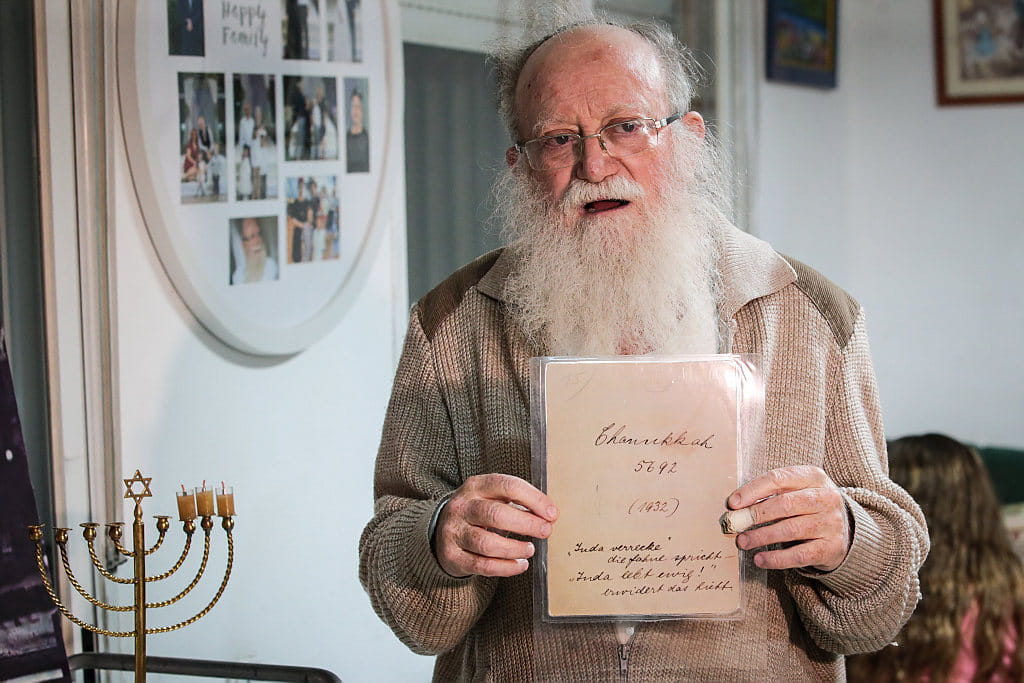 Happy
Family
Channukkah
5692
(1932)
„Juda verrecke"
die Fahne spricht –
„Juda lebt ewig!"
erwidert das Licht.